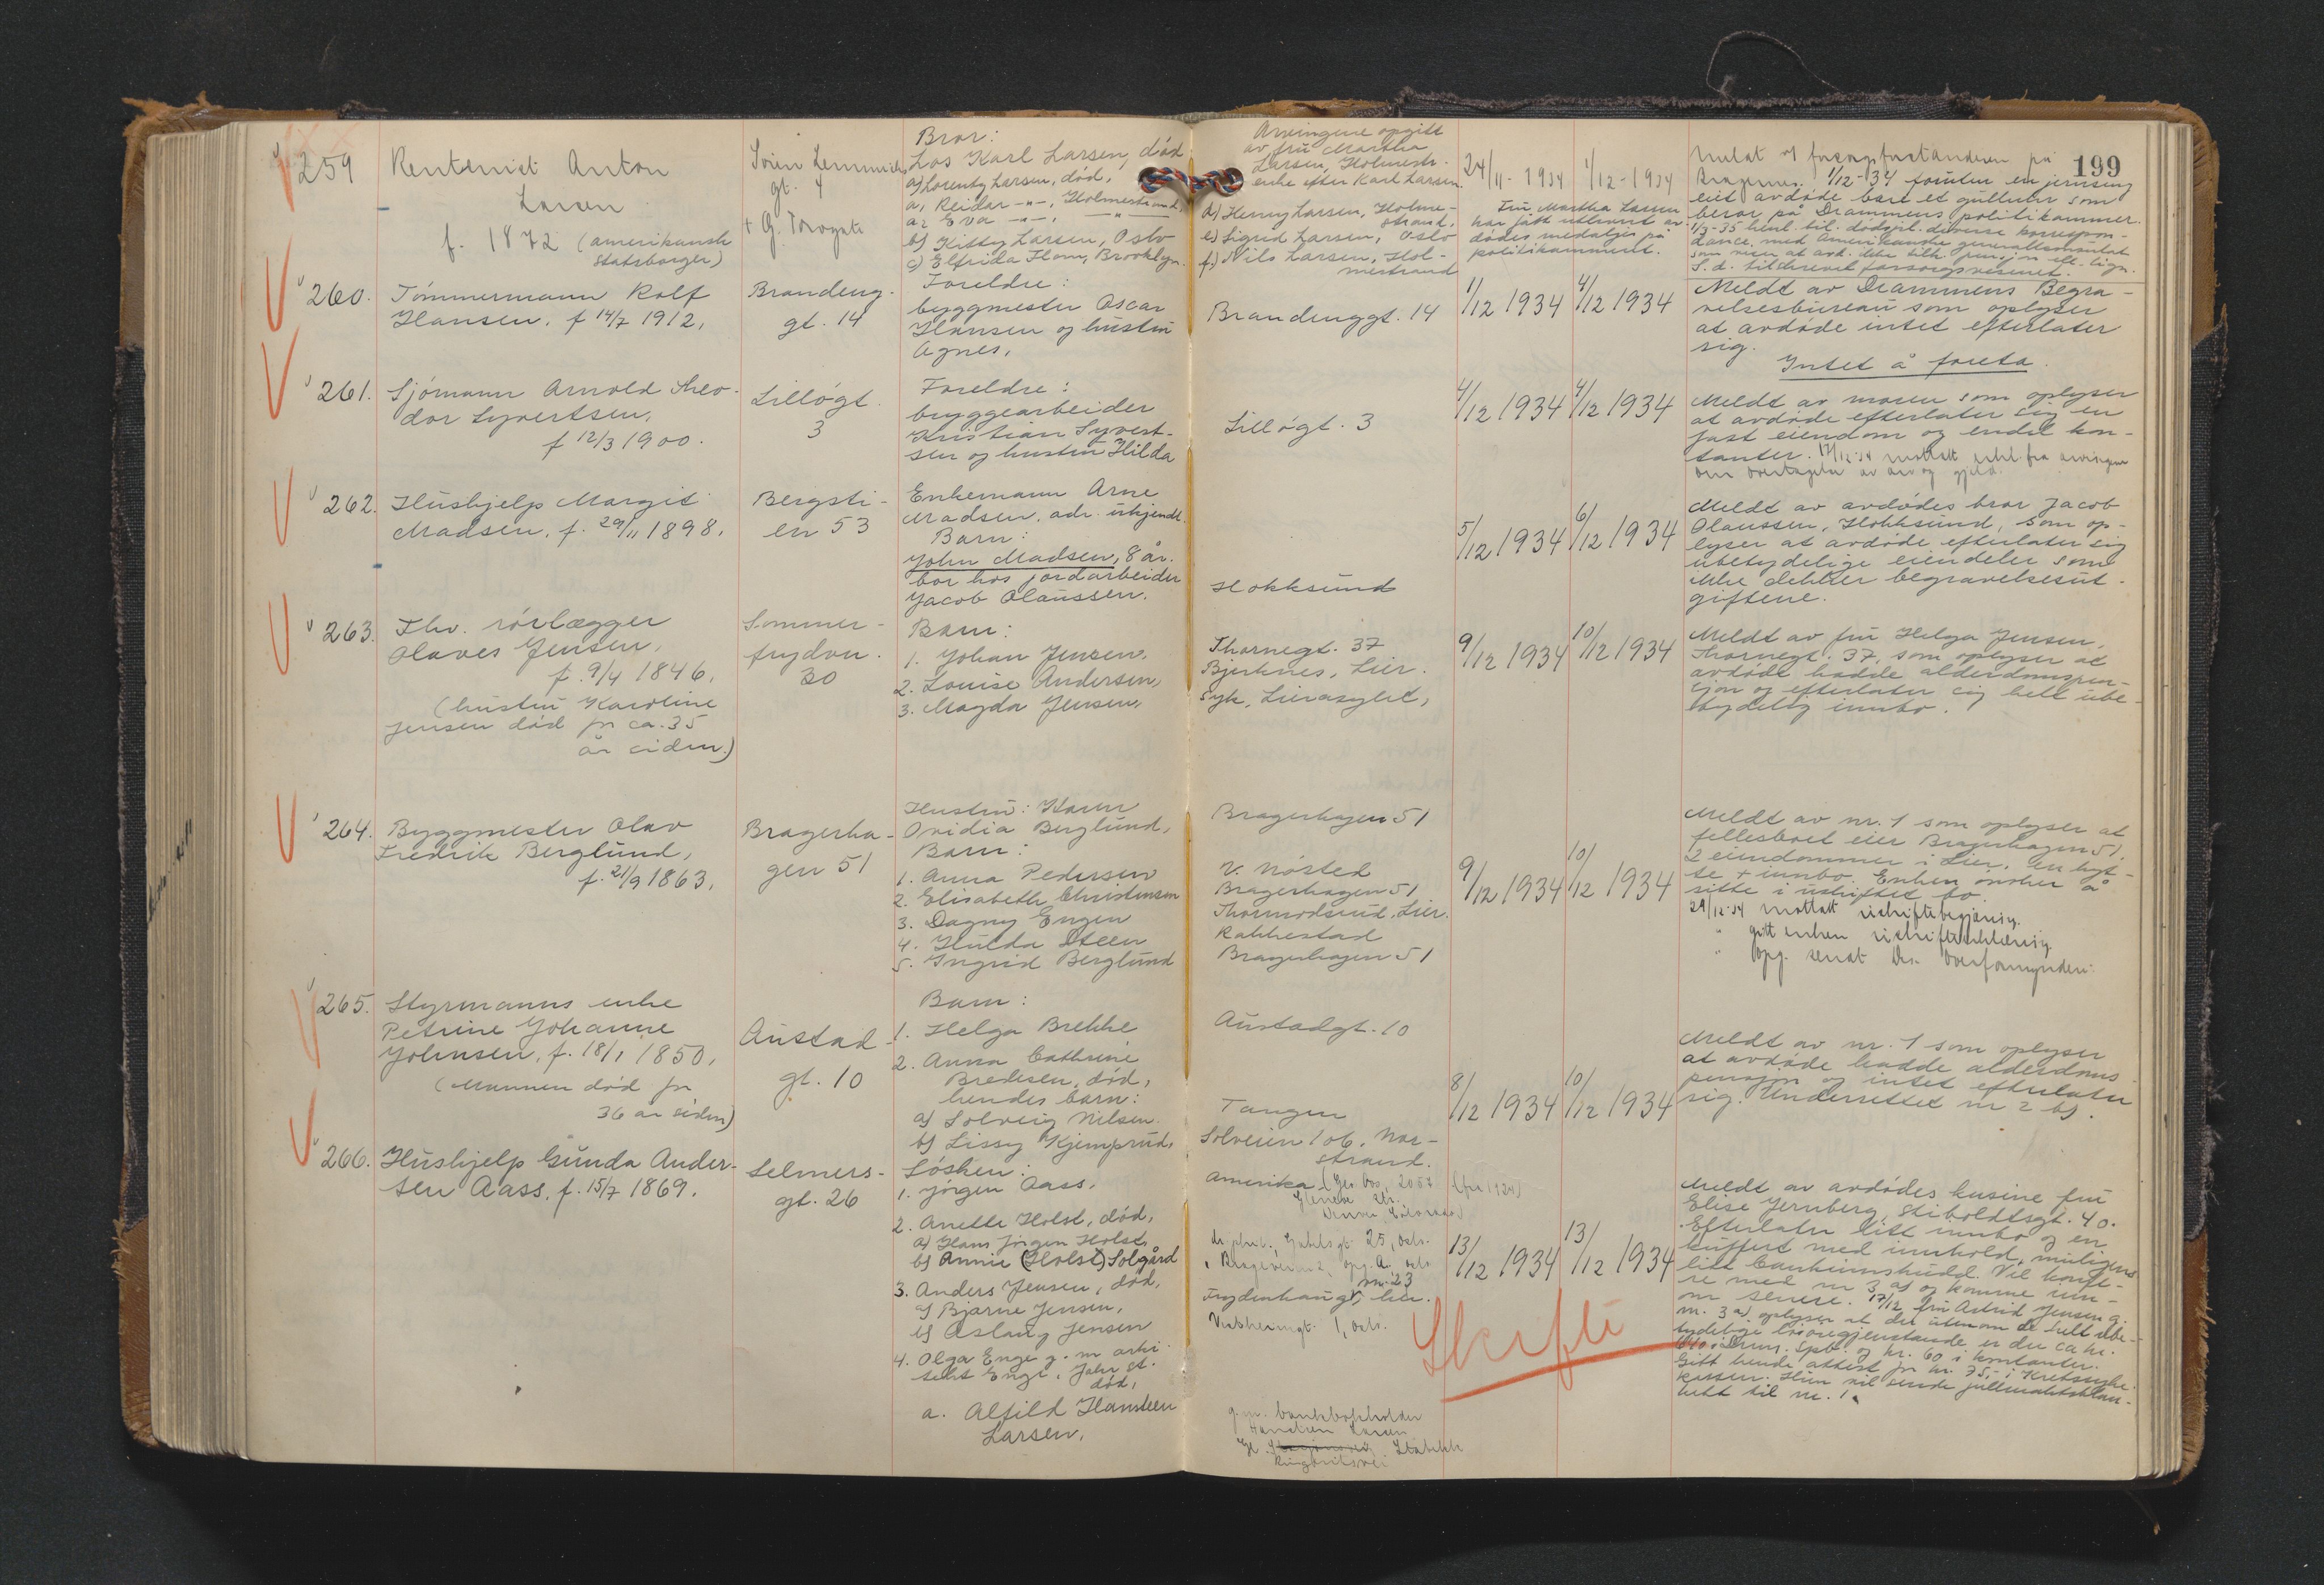 199
259
Rentenist Anton
Larsen
f. 1872 (amerikansk
statsborger)
Søren Lemmichs
gt. 4
+ G. Torvgate
Bror:
Los Karl Larsen, død
a) Lorentz Larsen, død,
a1 Reidar -"-, Holmestrand,
a2 Eva -"-, -"-
b) Kitty Larsen, Oslo
c) Elfrida Flom, Brooklyn.
Arvingene opgitt
av fru Martha
Larsen, Holmestr.
enke efter Karl Larsen.
d) Henry Larsen, Holme-
strand,
e) Sigrid Larsen, Oslo
f) Nils Larsen, Hol-
mestrand
24/11 - 1934
1/12 - 1934
Fru Martha Larsen
har fått utlevert av-
dødes medaljer på
politikammeret.
Meldt af forsorgsforstanderen på
Bragernes. 1/12-34 foruten en jernseng
eiet avdøde bare et gullur som
beror på Drammens politikammer.
1/3-35 henl. til dødsfil. diverse korrespon-
dance med Amerikanske generalkonsulat
som viser at avd. ikke tilk. pensjon ell. lign.
S.d. tilskrevet forsorgsvesenet.
260.
Tømmermann Rolf
Hansen, f 14/7 1912,
Brandeng.
gt. 14
Foreldre:
byggmester Oscar
Hansen og hustru
Agnes,
Brandenggt. 14
1/12 1934
4/12 1934
Meldt av Drammens Begra-
velsesbureau som oplyser
at avdøde intet efterlater
sig.
Intet å foreta.
261.
Sjømann Arnold Theo-
dor Syvertsen,
f 12/3 1900.
Lilløgt.
3
Foreldre:
bryggearbeider
Kristian Syvert-
sen og hustru Hilda
Lilløgt. 3
4/12 1934
4/12 1934
Meldt av moren som oplyser
at avdøde efterlater sig en
fast eiendom og endel kon-
tanter. 17/12-34 mottatt erkl. fra arvingene
om overtagelse av arv og gjeld.
262.
Hushjelp Margit
Madsen, f. 29/11 1898,
Bergsti-
en 53
Enkemann Arne
Madsen, adr. ukjendt.
Barn:
John Madsen, 8 år.
bor hos jordarbeider
Jacob Olaussen.
Hokksund
5/12 1934
6/12 1934
Meldt av avdødes bror Jacob
Olaussen, Hokksund, som op-
lyser at avdøde efterlater sig
ubetydelige eiendeler som
ikke dekker begravelsesut-
giftene.
263.
Fhv. rørlægger
Olaves Jensen,
f. 9/4 1846,
(hustru Karoline
Jensen død for ca. 35
år siden.)
Sommer-
frydvn.
30
Barn:
1. Johan Jensen,
2. Louise Andersen,
3. Magda Jensen,
Thornegt. 37
Bjerknes, Lier.
Syk, Lierasylet,
9/12 1934
10/12 1934
Meldt av fru Helga Jensen,
Thornegt. 37, som oplyser at
avdøde hadde alderdomspen-
sjon og efterlater sig helt ube-
tydelig innbo.
264.
Byggmester Olav
Fredrik Berglund,
f. 21/9 1863,
Bragerha-
gen 51
Hustru: Karen
Ovidia Berglund,
Barn:
1. Anna Pedersen
2. Elisabeth Christensen
3. Dagny Engen
4. Hulda Steen
5. Ingrid Berglund
Bragerhagen 51
v. Nøsted
Bragerhagen 51
Thormodsrud, Lier.
Rakkestad
Bragerhagen 51
9/12 1934
10/12 1934
Meldt av nr. 1 som oplyser at
fellesboet eier Bragerhagen 51,
2 eiendommer i Lier, en hyt-
te + innbo. Enken ønsker å
sitte i uskiftet bo.
29/12-34 mottatt uskiftebegjæring.
" gitt enken uskifteerklæring.
" opg. sendt Dr. Overformynderi.
265.
Styrmanns enke
Petrine Johanne
Johnsen, f. 18/1 1850,
(Mannen død for
36 år siden)
Austad-
gt. 10
Barn:
1. Helga Brekke
2. Anna Cathrine
Bredesen, død,
hendes barn:
a) Solveig Nilsen
b) Lissy Kjemprud,
Austadgt. 10
Tangen
Solveien 106, Nor-
strand.
8/12 1934
10/12 1934
Meldt av nr. 1 som oplyser
at avdøde hadde alderdoms
pensjon og intet efterlater
sig. Underrettet nr 2 b).
266.
Hushjelp Gunda Ander-
sen Aass, f. 15/7 1869.
Selmers-
gt. 26
Søsken:
1. Jørgen Aass,
2. Anette Holst, død,
a) Hans Jørgen Holst,
b) Annie (Holst) Solgård
3. Anders Jensen, død,
a) Bjarne Jensen,
b) Aslaug Jensen
4. Olga Enge g. m arki-
tekt Enge,
død,
a. Alfild Hansteen
Larsen,
Amerika (
Oslo.
Frydenhaug, Lier.
1, Oslo.
g. m. bankbokholder
Hansteen Larsen
Stabekk
Ringeriksvei
13/12 1934
13/12 1934
Skifte
Meldt av avdødes kusine fru
Elise Jernberg, Stiboldtsgt. 40.
Efterlater litt innbo og en
kuffert med innhold, muligens
litt bankinnskudd. Vil konfe-
re med nr 3 a) og komme inn-
om senere. 17/12 fru Astrid Jensen g.
m. 3 a) oplyser at der utenom de helt ube-
tydelige løsøregjenstande er der ca kr.
640 i Dram. Spb. og kr. 60 i kontanter.
Gitt hende attest for kr. 75,- i Kretssyke-
kassen. Hun vil sende fullmaktsblan-
kett til nr. 1.